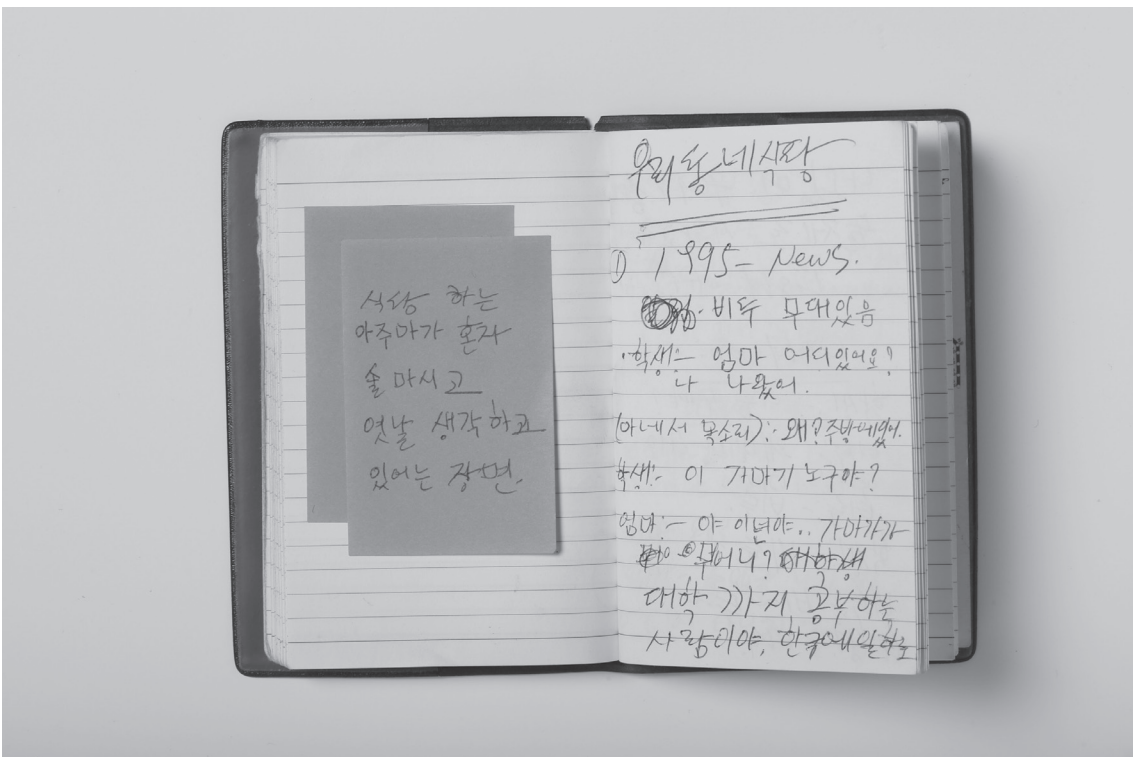 식당 하는
아주마가 혼자
술 마시고
옛날 생각하고
있어는 장면.
우리 동네식당
① 1995- News.
비두 무대있음
·학생:- 엄마 어디있어요?
나 나왔어.
(아네서 목소리):- 왜? 주방에있어.
학생:- 이 거마기 노구야?
엄마:- 야 이년아.. 가마가가
대학 까지 공부하는
사람이야, 한국에 일하로